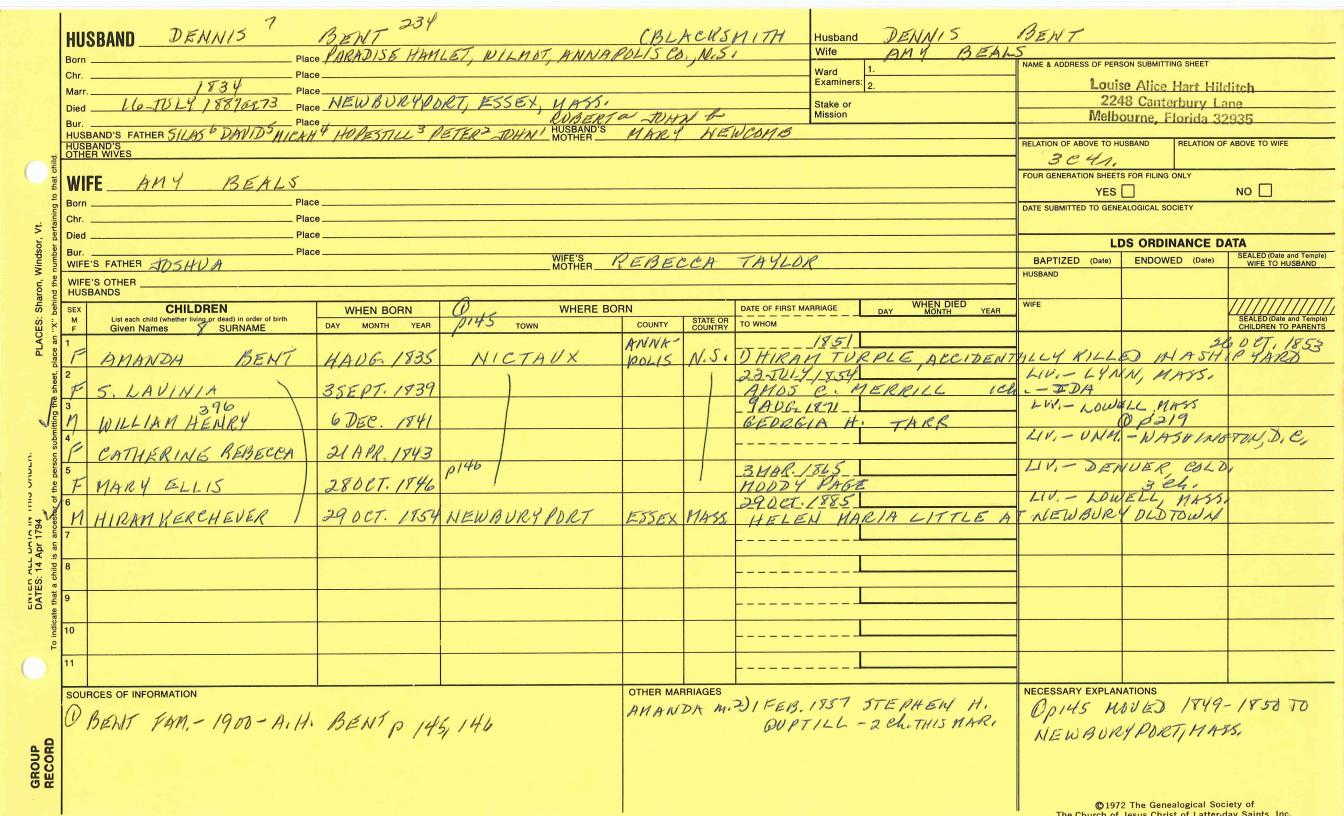 HUSBAND DENNIS 7 BENT 234 (BLACKSMITH
Born Place PARADISE HAMLET, WILMOT, ANNAPOLIS CO., N.S.
Chr. Place
Marr. 1834 Place
Died 16 JULY 1887 at 73 Place NEWBURYPORT, ESSEX, MASS.
Bur. Place ROBERT a JOHN b
HUSBAND'S FATHER SILAS 6 DAVID 5 MICAH 4 HOPESTILL 3 PETER 2 JOHN 1 HUSBAND'S MOTHER MARY NEWCOMB
HUSBAND'S OTHER WIVES
Husband DENNIS BENT
Wife AMY BEALS
Ward Examiners: 1.
2.
Stake or Mission
NAME & ADDRESS OF PERSON SUBMITTING SHEET
Louise Alice Hart Hilditch
2248 Canterbury Lane
Melbourne, Florida 32935
RELATION OF ABOVE TO HUSBAND RELATION OF ABOVE TO WIFE
3C4r.
FOUR GENERATION SHEETS FOR FILING ONLY
YES NO
DATE SUBMITTED TO GENEALOGICAL SOCIETY
WIFE AMY BEALS
Born Place
Chr. Place
Died Place
Bur. Place
WIFE'S FATHER JOSHUA WIFE'S MOTHER REBECCA TAYLOR
WIFE'S OTHER HUSBANDS
LDS ORDINANCE DATA
BAPTIZED (Date) ENDOWED (Date) SEALED (Date and Temple) WIFE TO HUSBAND
HUSBAND
WIFE
SEALED (Date and Temple) CHILDREN TO PARENTS
SEX M F
CHILDREN
List each child (whether living or dead) in order of birth
Given Names 8 SURNAME
WHEN BORN
DAY MONTH YEAR
① p145 WHERE BORN
TOWN COUNTY STATE OR COUNTRY
DATE OF FIRST MARRIAGE
TO WHOM
WHEN DIED
DAY MONTH YEAR
1 F AMANDA BENT 4 AUG. 1835 NICTAUX ANNAPOLIS N.S. 1851 26 OCT. 1853
1) HIRAM TURPLE, ACCIDENTALLY KILLED IN A SHIPYARD
2 F S. LAVINIA 3 SEPT. 1839 23 JULY 1854 LIV. - LYNN, MASS.
AMOS C. MERRILL 1ch. - IDA
3 M WILLIAM HENRY 396 6 DEC. 1841 9 AUG. 1871 LIV. - LOWELL, MASS
GEORGIA H. TARR ① p219
4 F CATHERINE REBECCA 21 APR. 1843 LIV. - UNM. - WASHINGTON, D.C.
5 F MARY ELLIS 28 OCT. 1846 p146 3 MAR. 1865 LIV. - DENVER, COLO.
MOODY PAGE 3 ch.
6 M HIRAM KERCHEVER 29 OCT. 1854 NEWBURYPORT ESSEX MASS. 29 OCT. 1885 LIV. - LOWELL, MASS.
HELEN MARIA LITTLE AT NEWBURY OLDTOWN
7
8
9
10
11
SOURCES OF INFORMATION
① BENT FAM. - 1900 - A.H. BENT p 145, 146
OTHER MARRIAGES
AMANDA m. 2) 1 FEB. 1857 STEPHEN H.
GUPTILL - 2 ch. THIS MAR.
NECESSARY EXPLANATIONS
① p145 MOVED 1849-1850 TO
NEWBURYPORT, MASS.
©1972 The Genealogical Society of
The Church of Jesus Christ of Latter-day Saints, Inc.
GROUP RECORD
DATES: 14 Apr 1794 PLACES: Sharon, Windsor, Vt.
To indicate that a child is an ancestor of the person submitting the sheet, place an "X" behind the number pertaining to that child.